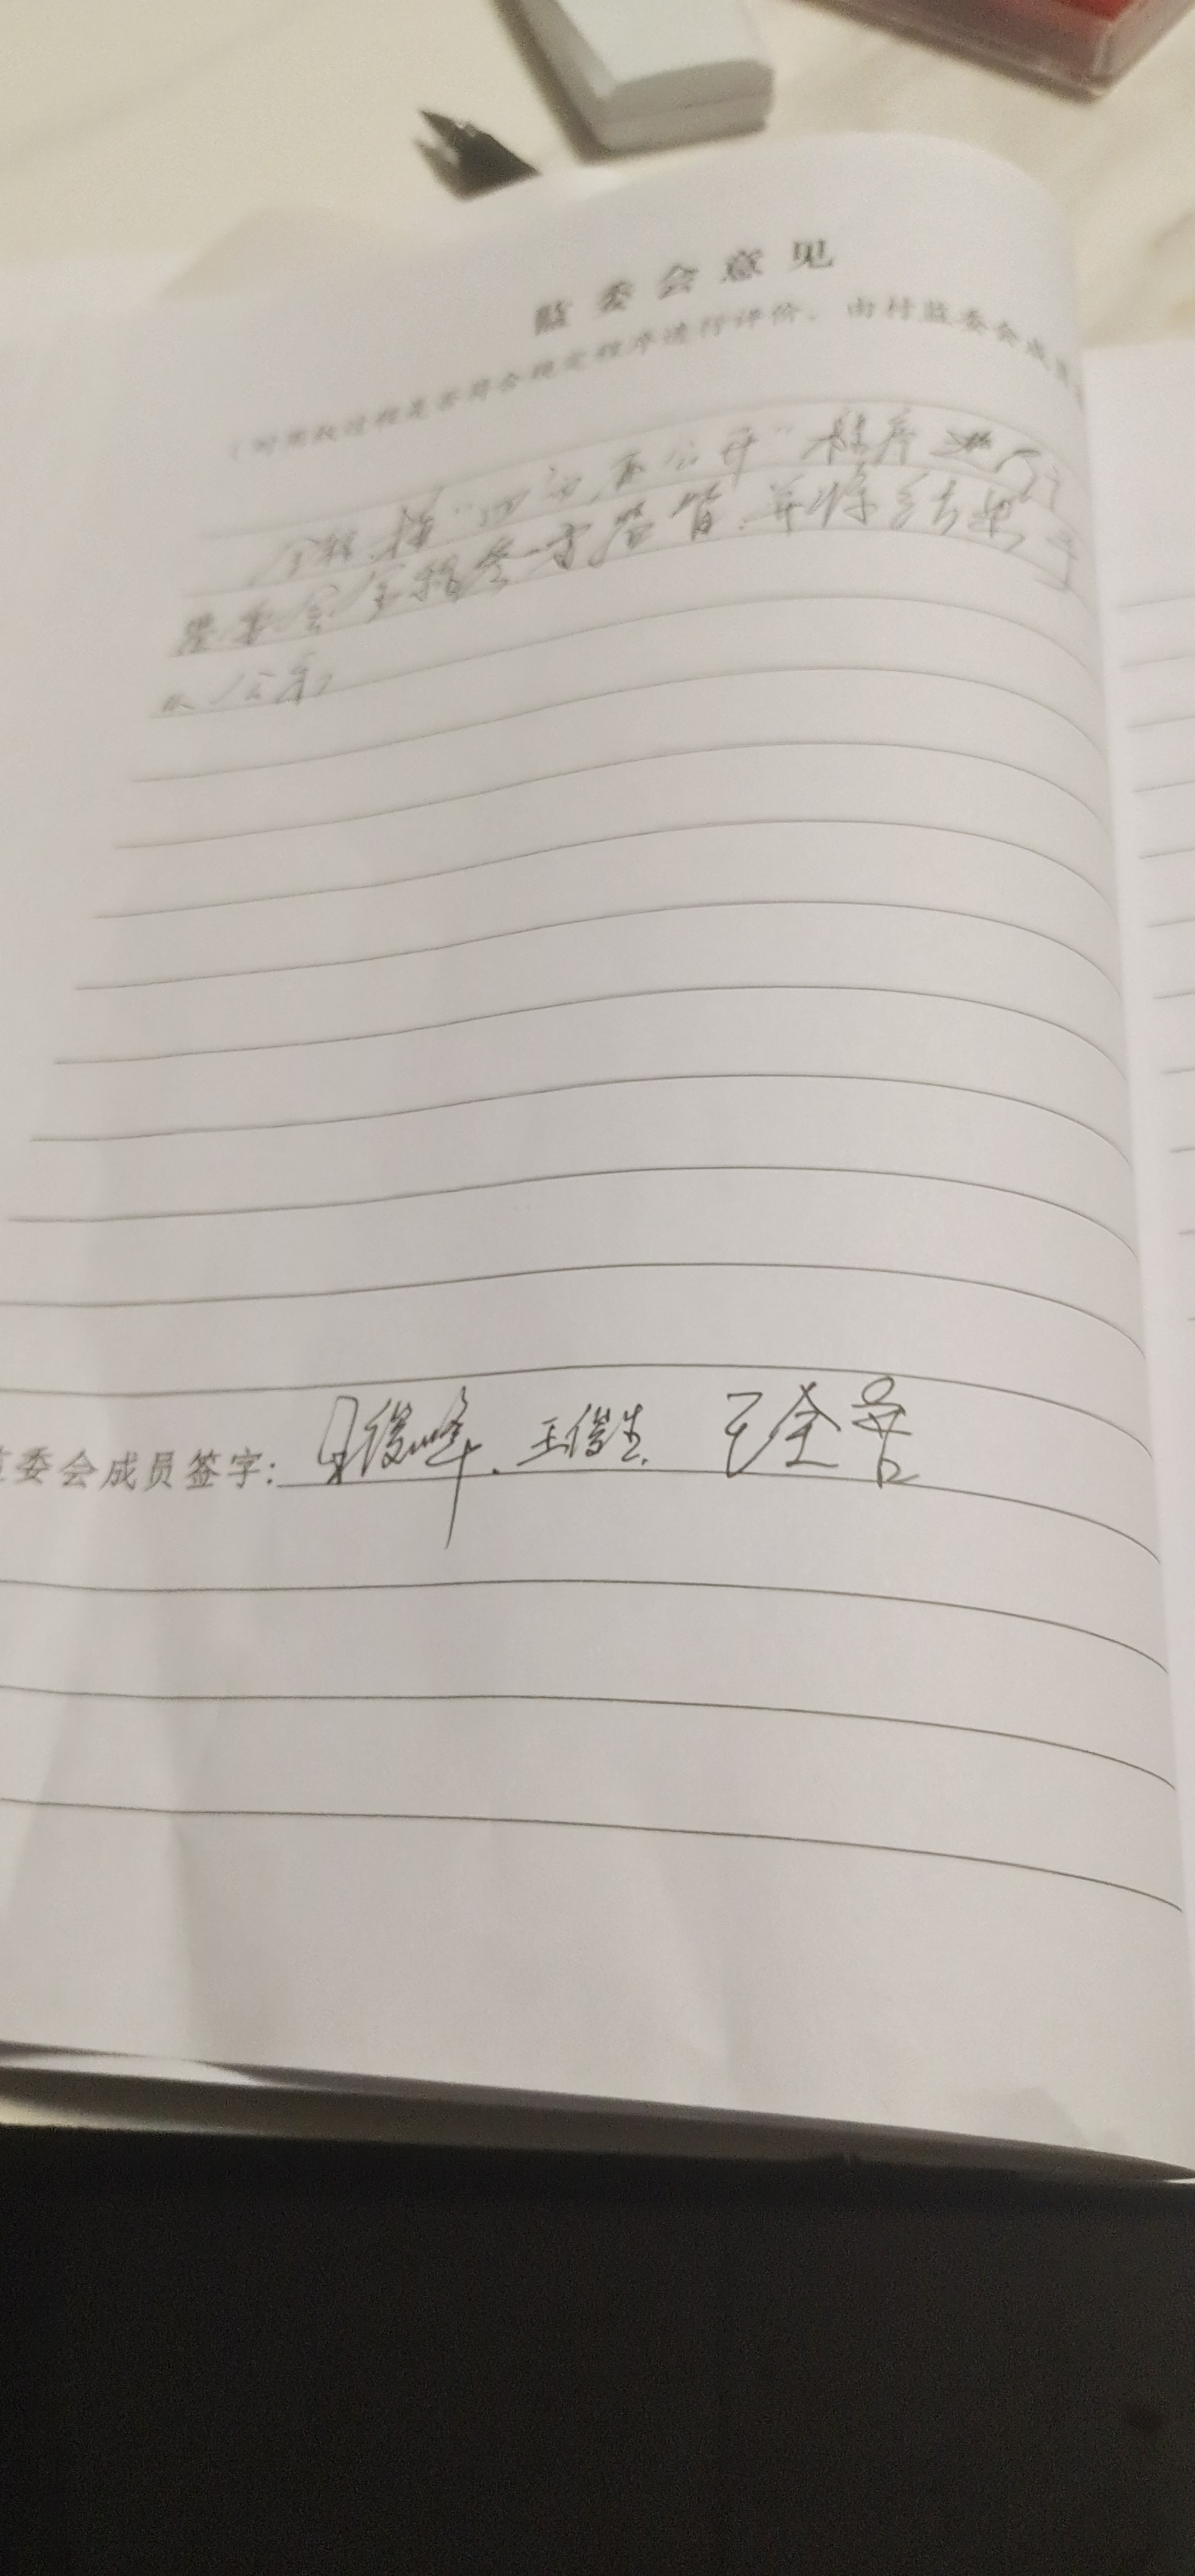 监委会意见
(对票决过程是否符合规定程序进行评价,由村监委会成员
全程按“四议两公开”程序进行
监委会全程参与监督,并将结果予
以公示
监委会成员签字: 俊峰、王俊生、王全善